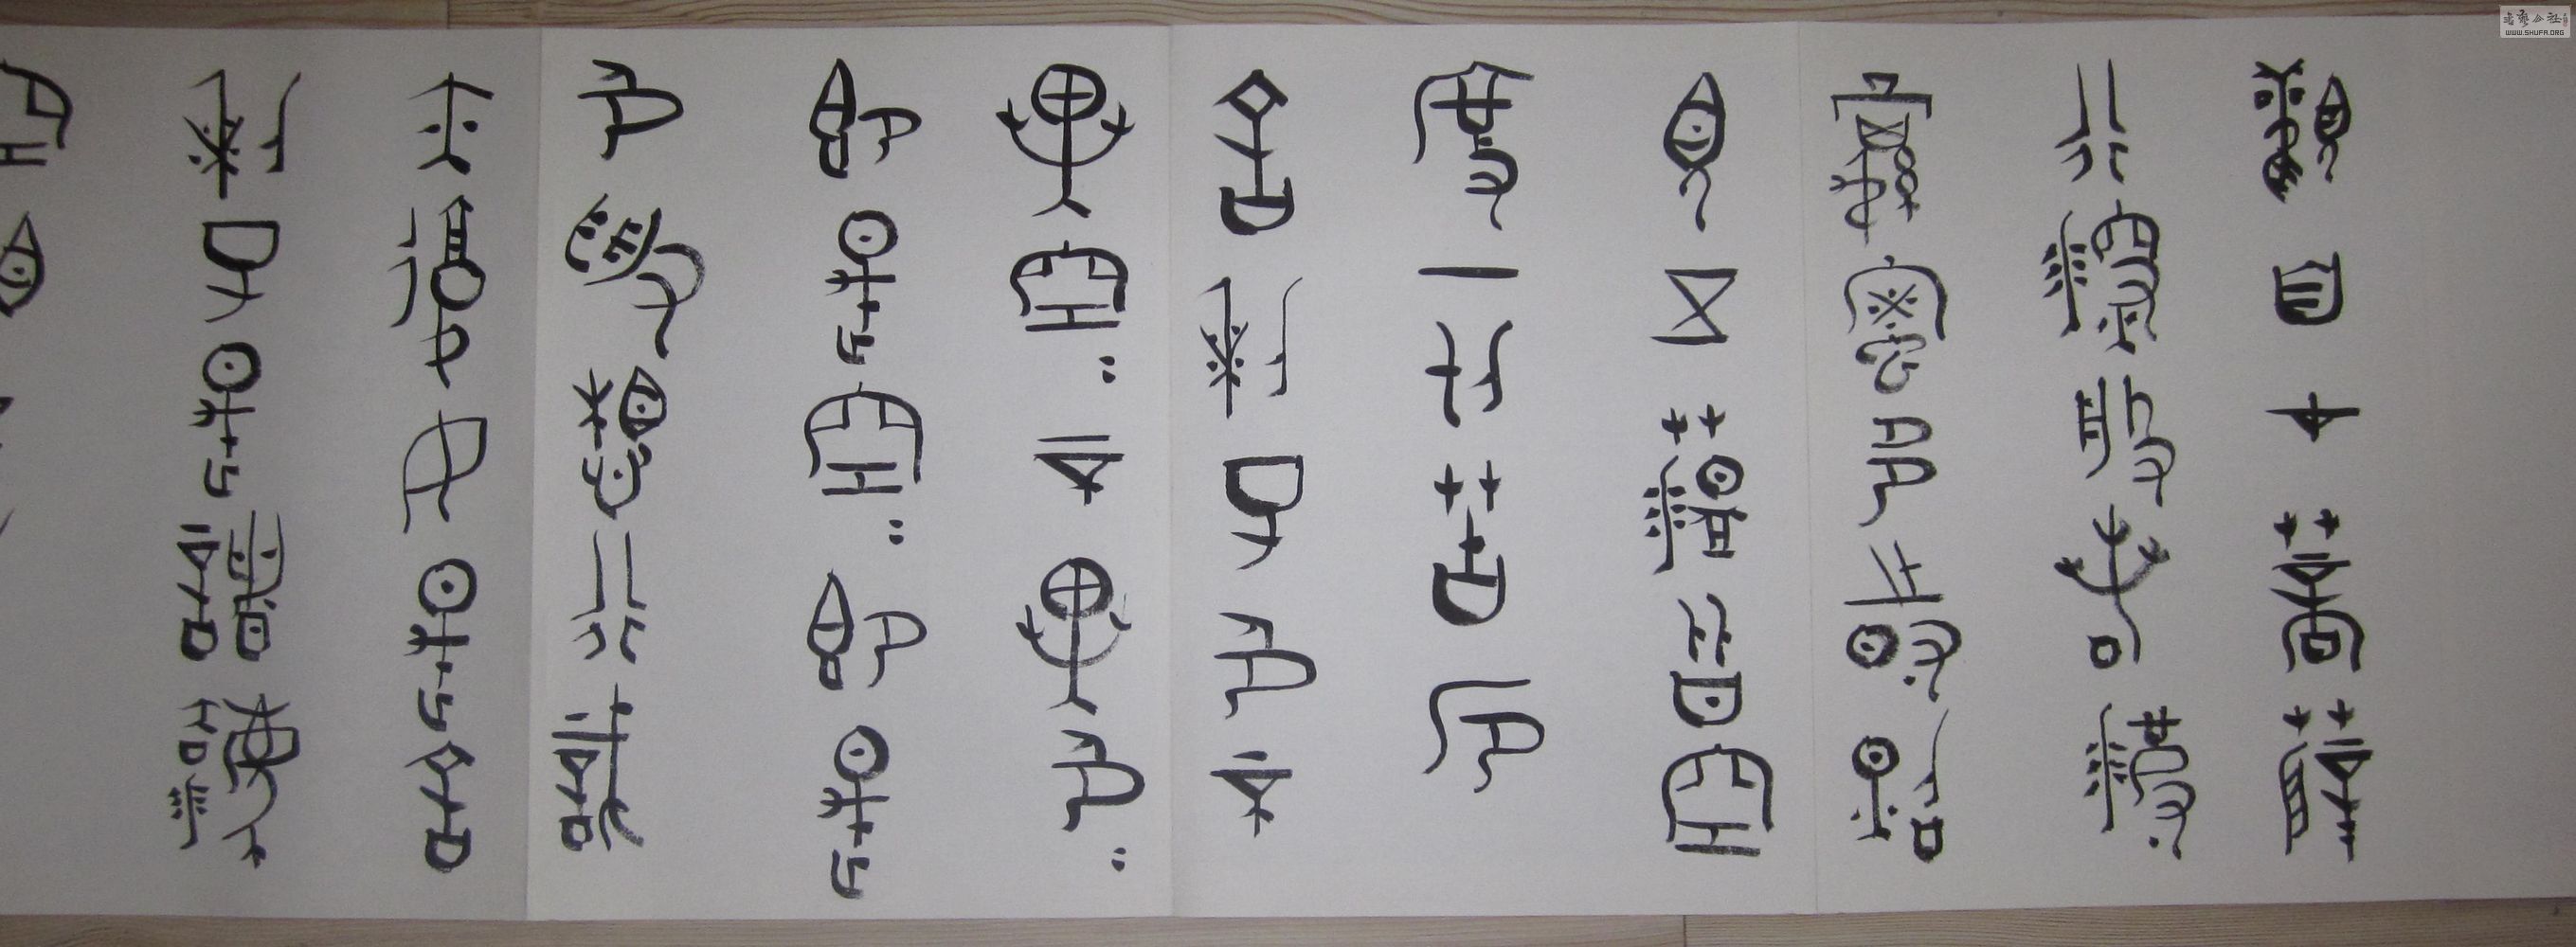 觀自在菩薩
行深般若波
羅蜜多時照
見五蘊皆空
度一切苦厄
舍利子色不
異空〃不異色〃
即是空〃即是
色受想行識
亦復如是舍
利子是諸法
WWW.SHUFA.ORG